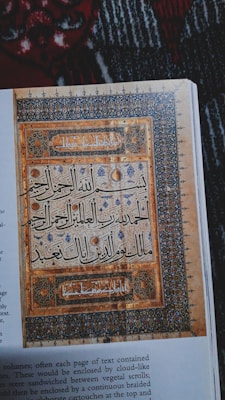 بسم الله الرحمن الرحيم
الحمد لله رب العلمين الرحمن الرحيم
ملك يوم الدين اياك نعبد
volumes; often each page of text contained
These would be enclosed by cloud-like
were sandwiched between vegetal scrolls,
then be enclosed by a continuous braided
elaborate cartouches at the top and